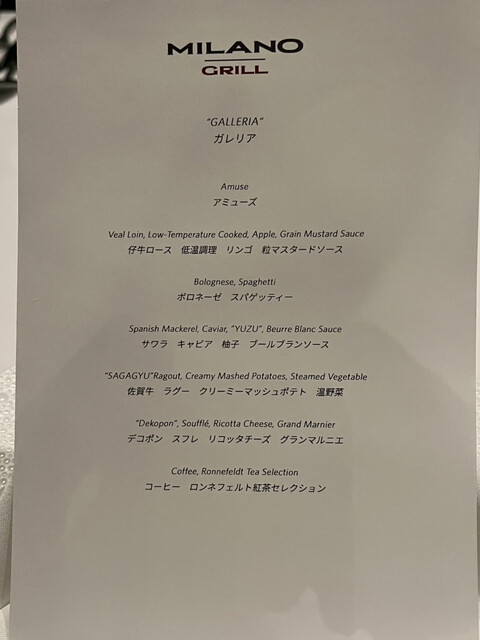 MILANO
GRILL
"GALLERIA"
ガレリア
Amuse
アミューズ
Veal Loin, Low-Temperature Cooked, Apple, Grain Mustard Sauce
仔牛ロース　低温調理　リンゴ　粒マスタードソース
Bolognese, Spaghetti
ボロネーゼ　スパゲッティー
Spanish Mackerel, Caviar, "YUZU", Beurre Blanc Sauce
サワラ　キャビア　柚子　ブールブランソース
"SAGAGYU"Ragout, Creamy Mashed Potatoes, Steamed Vegetable
佐賀牛　ラグー　クリーミーマッシュポテト　温野菜
"Dekopon", Soufflé, Ricotta Cheese, Grand Marnier
デコポン　スフレ　リコッタチーズ　グランマルニエ
Coffee, Ronnefeldt Tea Selection
コーヒー　ロンネフェルト紅茶セレクション